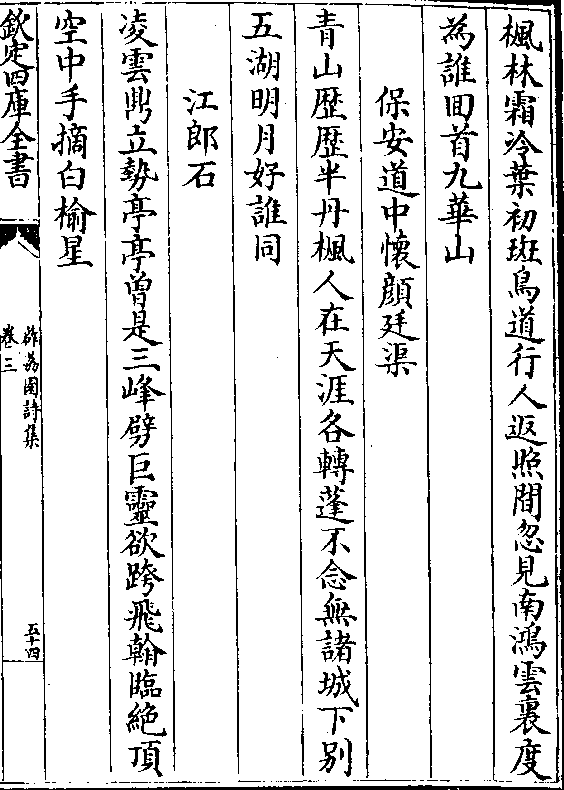 楓林霜冷葉初斑鳥道行人返照間忽見南鴻雲裏度
為誰回首九華山
保安道中懷顔廷渠
青山歴歴半丹楓人在天涯各轉蓬不念無諸城下别
五湖明月好誰同
江郎石
凌雲鼎立勢亭亭曽是三峰劈巨靈欲跨飛翰臨絶頂
空中手摘白榆星
欽定四庫全書
薜荔園詩集
卷三
五十四